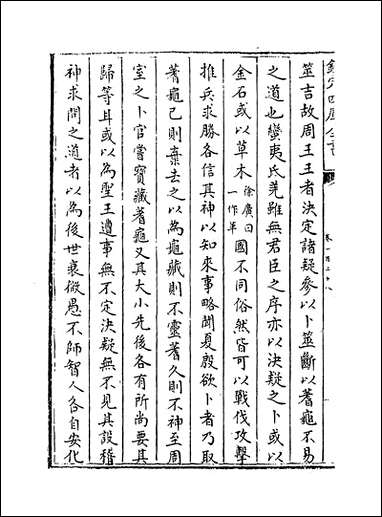 欽定四庫全書
卷一百二十八
筮吉故周王王者決定諸疑參以卜筮斷以蓍龜不易
之道也蠻夷氐羌雖無君臣之序亦以決疑之卜或以
金石或以草木徐廣曰一作革國不同俗然皆可以戰伐攻擊
推兵求勝各信其神以知來事略聞夏殷欲卜者乃取
蓍龜已則棄去之以為龜藏則不靈蓍久則不神至周
室之卜官嘗寶藏蓍龜又其大小先後各有所尚要其
歸等耳或以為聖王遭事無不定決疑無不見其設稽
神求問之道者以為後世衰微愚不師智人各自安化